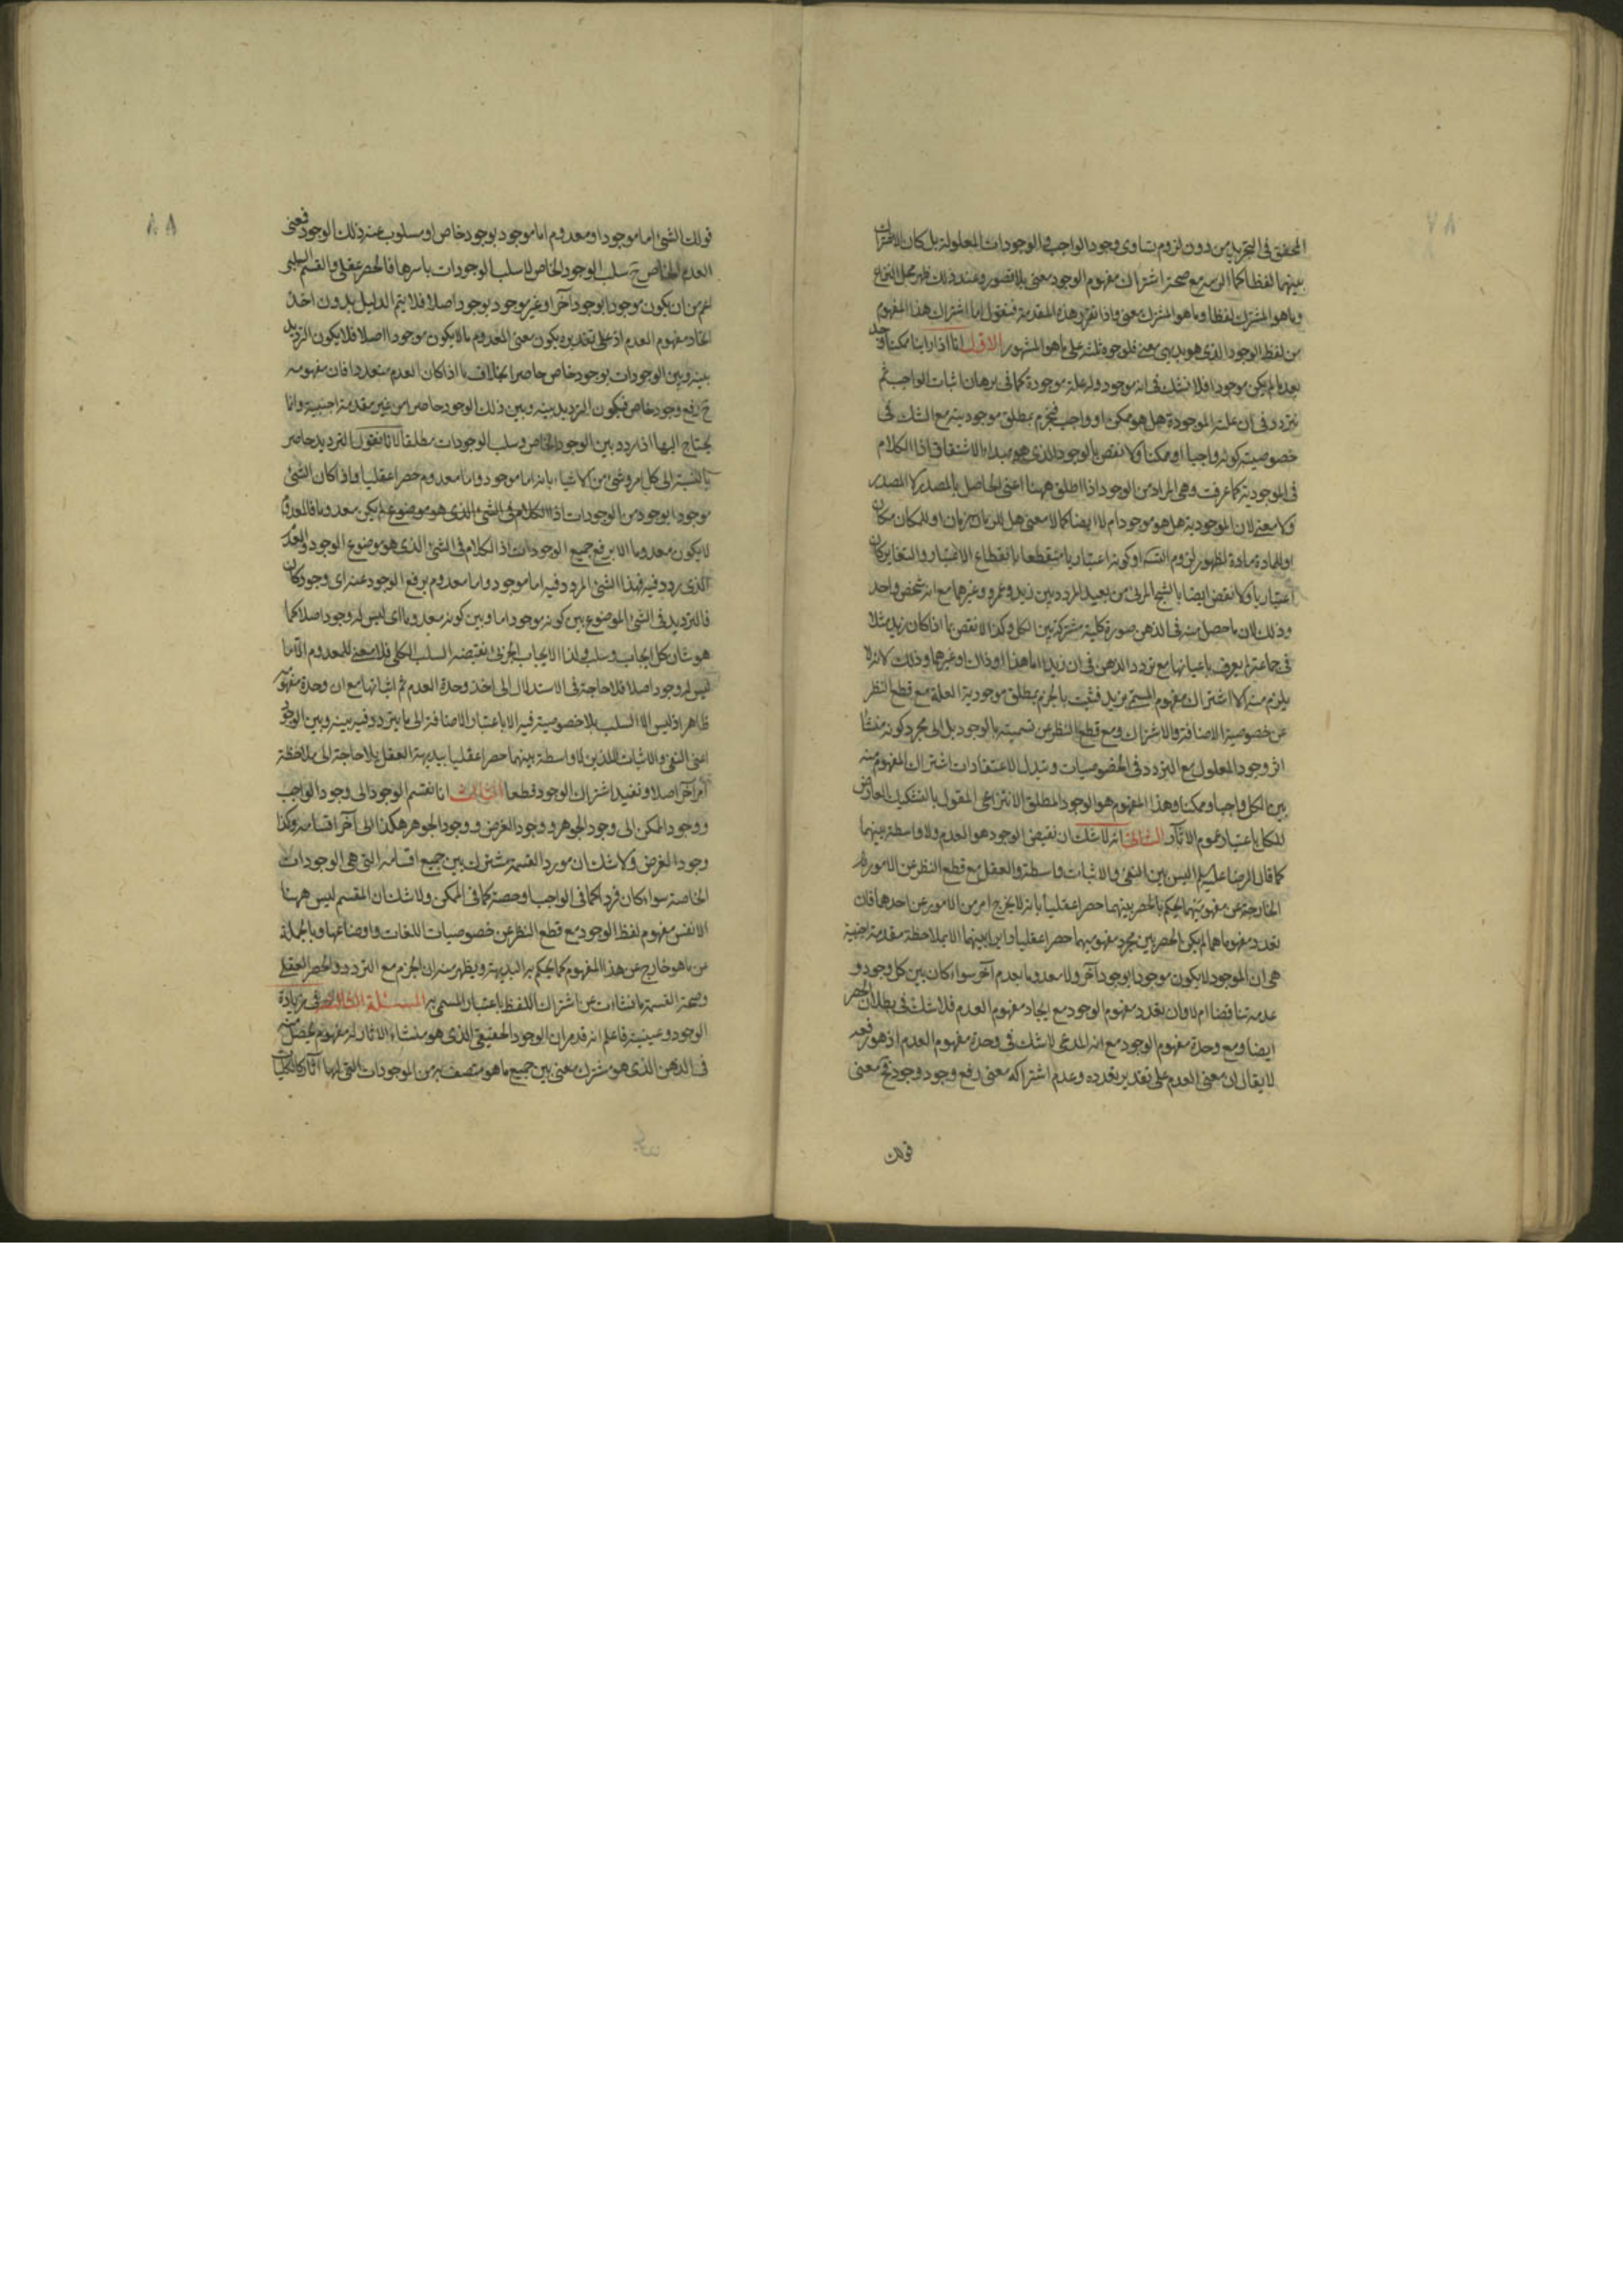 ٨٧
المحقق في التجريد من دون لزوم تساوى وجود الواجب والوجودات المعلولة بل كان الاشتراك
بينهما لفظا كما مع صحة اشتراك مفهوم الوجود معنى بلا قصور وعند ذلك ظهر محل النزاع
وما هو المشترك لفظا وما هو المشترك معنى واذا تقرر هذه المقدمة فنقول اما اشتراك هذا المفهوم
من لفظ الوجود الذى هو بديهى معنى فلوجوه ثلثة على ما هو المشهور الاول انا اذا راينا ممكنا وجد
بعد ما لم يكن موجودا فلا نشك فى انه موجود وله علة موجودة كما فى برهان اثبات الواجب ثم
نتردد فى ان علته الموجودة هل هو ممكن او واجب فنجزم بمطلق موجوديته مع الشك فى
خصوصيته كونه واجبا او ممكنا ولا نقض بالوجود الذى هو مبداء الاشتقاق اذ الكلام
فى الموجودية كما عرفت وهى المراد من الوجود اذا اطلق ههنا اعنى الحاصل بالمصدر لا المصدر
ولا معنى لان الموجودية هل هو موجود ام لا ايضا كما لا معنى هل للزمان زمان او للمكان مكان
او للمادة مادة لظهور لزوم التسلسل او كونه اعتباريا منقطعا بانقطاع الاعتبار والتغاير كان
اعتباريا ولا نقض ايضا بالشبح المرئى من بعيد المردد بين زيد وعمرو وغيرهما مع انه شخص واحد
وذلك لان ما حصل منه فى الذهن صورة كلية مشتركة بين الكل وكذا لا نقض بما اذا كان زيد مثلا
فى جماعة لم يعرف باعيانها مع تردد الذهن فى ان زيدا اما هذا او ذاك او غيرهما وذلك لانه لا
يلزم منه الا اشتراك مفهوم المسمى بزيد فثبت بالجزم بمطلق موجودية العلة مع قطع النظر
عن خصوصية الاضافة والاشتراك ومع قطع النظر عن تسميته بالوجود بل الى مجرد كونه منشأ
اثر وجود المعلول مع التردد فى الخصوصيات وتبدل الاعتقادات اشتراك المفهوم منه
بين الكل واجبا وممكنا وهذا المفهوم هو الوجود المطلق الانتزاعى المقول بالتشكيك العارض
للكل باعتبار عموم الاثار الثانى انه لا شك ان نقيض الوجود هو العدم ولا واسطة بينهما
كما قال الرضا عليه السلم ليس بين النفى والاثبات واسطة والعقل مع قطع النظر عن الامور
الخارجة عن مفهوميهما يحكم بالحصر بينهما حصرا عقليا بانه لا يخرج امر من الامور عن احدهما فان
تعدد مفهوماهما لم يكن الحصر بين مجرد مفهوميهما حصرا عقليا دايرا بينهما الا بملاحظة مقدمة اجنبية
هى ان الموجود لا يكون موجودا بوجود آخر ولا معدوما بعدم آخر سواء كان بين كل وجود و
عدمه تناقضا ام لا وان تعدد مفهوم الوجود مع ايجاد مفهوم العدم فلا شك فى بطلان الحصر
ايضا ومع وحدة مفهوم الوجود مع انه المدعى لا شك فى وحدة مفهوم العدم اذ هو رفعه
لا يقال ان معنى العدم على تقدير تعدده وعدم اشتراكه معنى رفع وجود وجود فح معنى
قولك
٨٨
قولك الشئ اما موجود او معدوم اما موجود بوجود خاص او مسلوب عنه ذلك الوجود فمعنى
العدم الخاص ح سلب الوجود الخاص لا سلب الوجودات باسرها فالحصر عقلى والقسم السلبى
اعم من ان يكون موجودا بوجود آخر او غير موجود بوجود اصلا فلا يتم الدليل بدون اخذ
اتحاد مفهوم العدم اذ على تقديره يكون معنى المعدوم ما لا يكون موجودا اصلا فلا يكون الترديد
بينه وبين الوجودات بوجود خاص حاصرا بخلاف ما اذا كان العدم متعددا فان مفهومه
ح رفع وجود خاص فيكون الترديد بينه وبين ذلك الوجود حاصرا من غير مقدمة اجنبية وانما
يحتاج اليها اذا ردد بين الوجود الخاص وسلب الوجودات مطلقا لانا نقول الترديد حاصر
بالنسبة الى كل امر وشئ من الاشياء بانه اما موجود واما معدوم حصرا عقليا واذا كان الشئ
موجودا بوجود من الوجودات اذ الكلام فى الشئ الذى هو موضوع لم يكن معدوما فالمعدوم
لا يكون معدوما الا برفع جميع الوجودات اذ الكلام فى الشئ الذى هو موضوع الوجود والعدم
الذى ردد فيه فهذا الشئ المردد فيه اما موجود واما معدوم برفع الوجود عنه اى وجود كان
فالترديد فى الشئ الموضوع بين كونه موجودا ما وبين كونه معدوما اى ليس له وجود اصلا كما
هو شان كل ايجاب وسلب ولذا الايجاب الجزئى نقيضه السلب الكلى فلا معنى للمعدوم الا ما
ليس له وجود اصلا فلا حاجة فى الاستدلال الى اخذ وحدة العدم ثم اثباتها مع ان وحدة مفهومه
ظاهر اذ ليس الا السلب بلا خصوصية فيه الا باعتبار الاضافة الى ما يتردد فيه بينه وبين الوجود
اعنى النفى والاثبات اللذين لا واسطة بينهما حصرا عقليا ببديهة العقل بلا حاجة الى ملاحظة
امر آخر اصلا ونفيد اشتراك الوجود قطعا الثالث انا نقسم الوجود الى وجود الواجب
ووجود الممكن الى وجود الجوهر ووجود العرض ووجود الجوهر هكذا الى آخر اقسامه وكذا
وجود العرض ولا شك ان مورد القسمة مشترك بين جميع اقسامه التى هى الوجودات
الخاصة سواء كان فردا كما فى الواجب او حصة كما فى الممكن ولا شك ان المقسم ليس ههنا
الا نفس مفهوم لفظ الوجود مع قطع النظر عن خصوصيات اللغات واوضاعها وبالجملة
عن ما هو خارج عن هذا المفهوم كما يحكم به البديهة ويظهر منه ان الجزم مع التردد والحصر العقلى
وصحة القسمة ما نشات عن اشتراك اللفظ باعتبار المسمى به المسئلة الثالثة فى زيادة
الوجود وعينيته فاعلم انه قد مر ان الوجود الحقيقى الذى هو منشاء الاثار له مفهوم يحصل منه
فى الذهن الذى هو مشترك معنى بين جميع ما هو متصف به من الموجودات التى لها آثار كالكليات